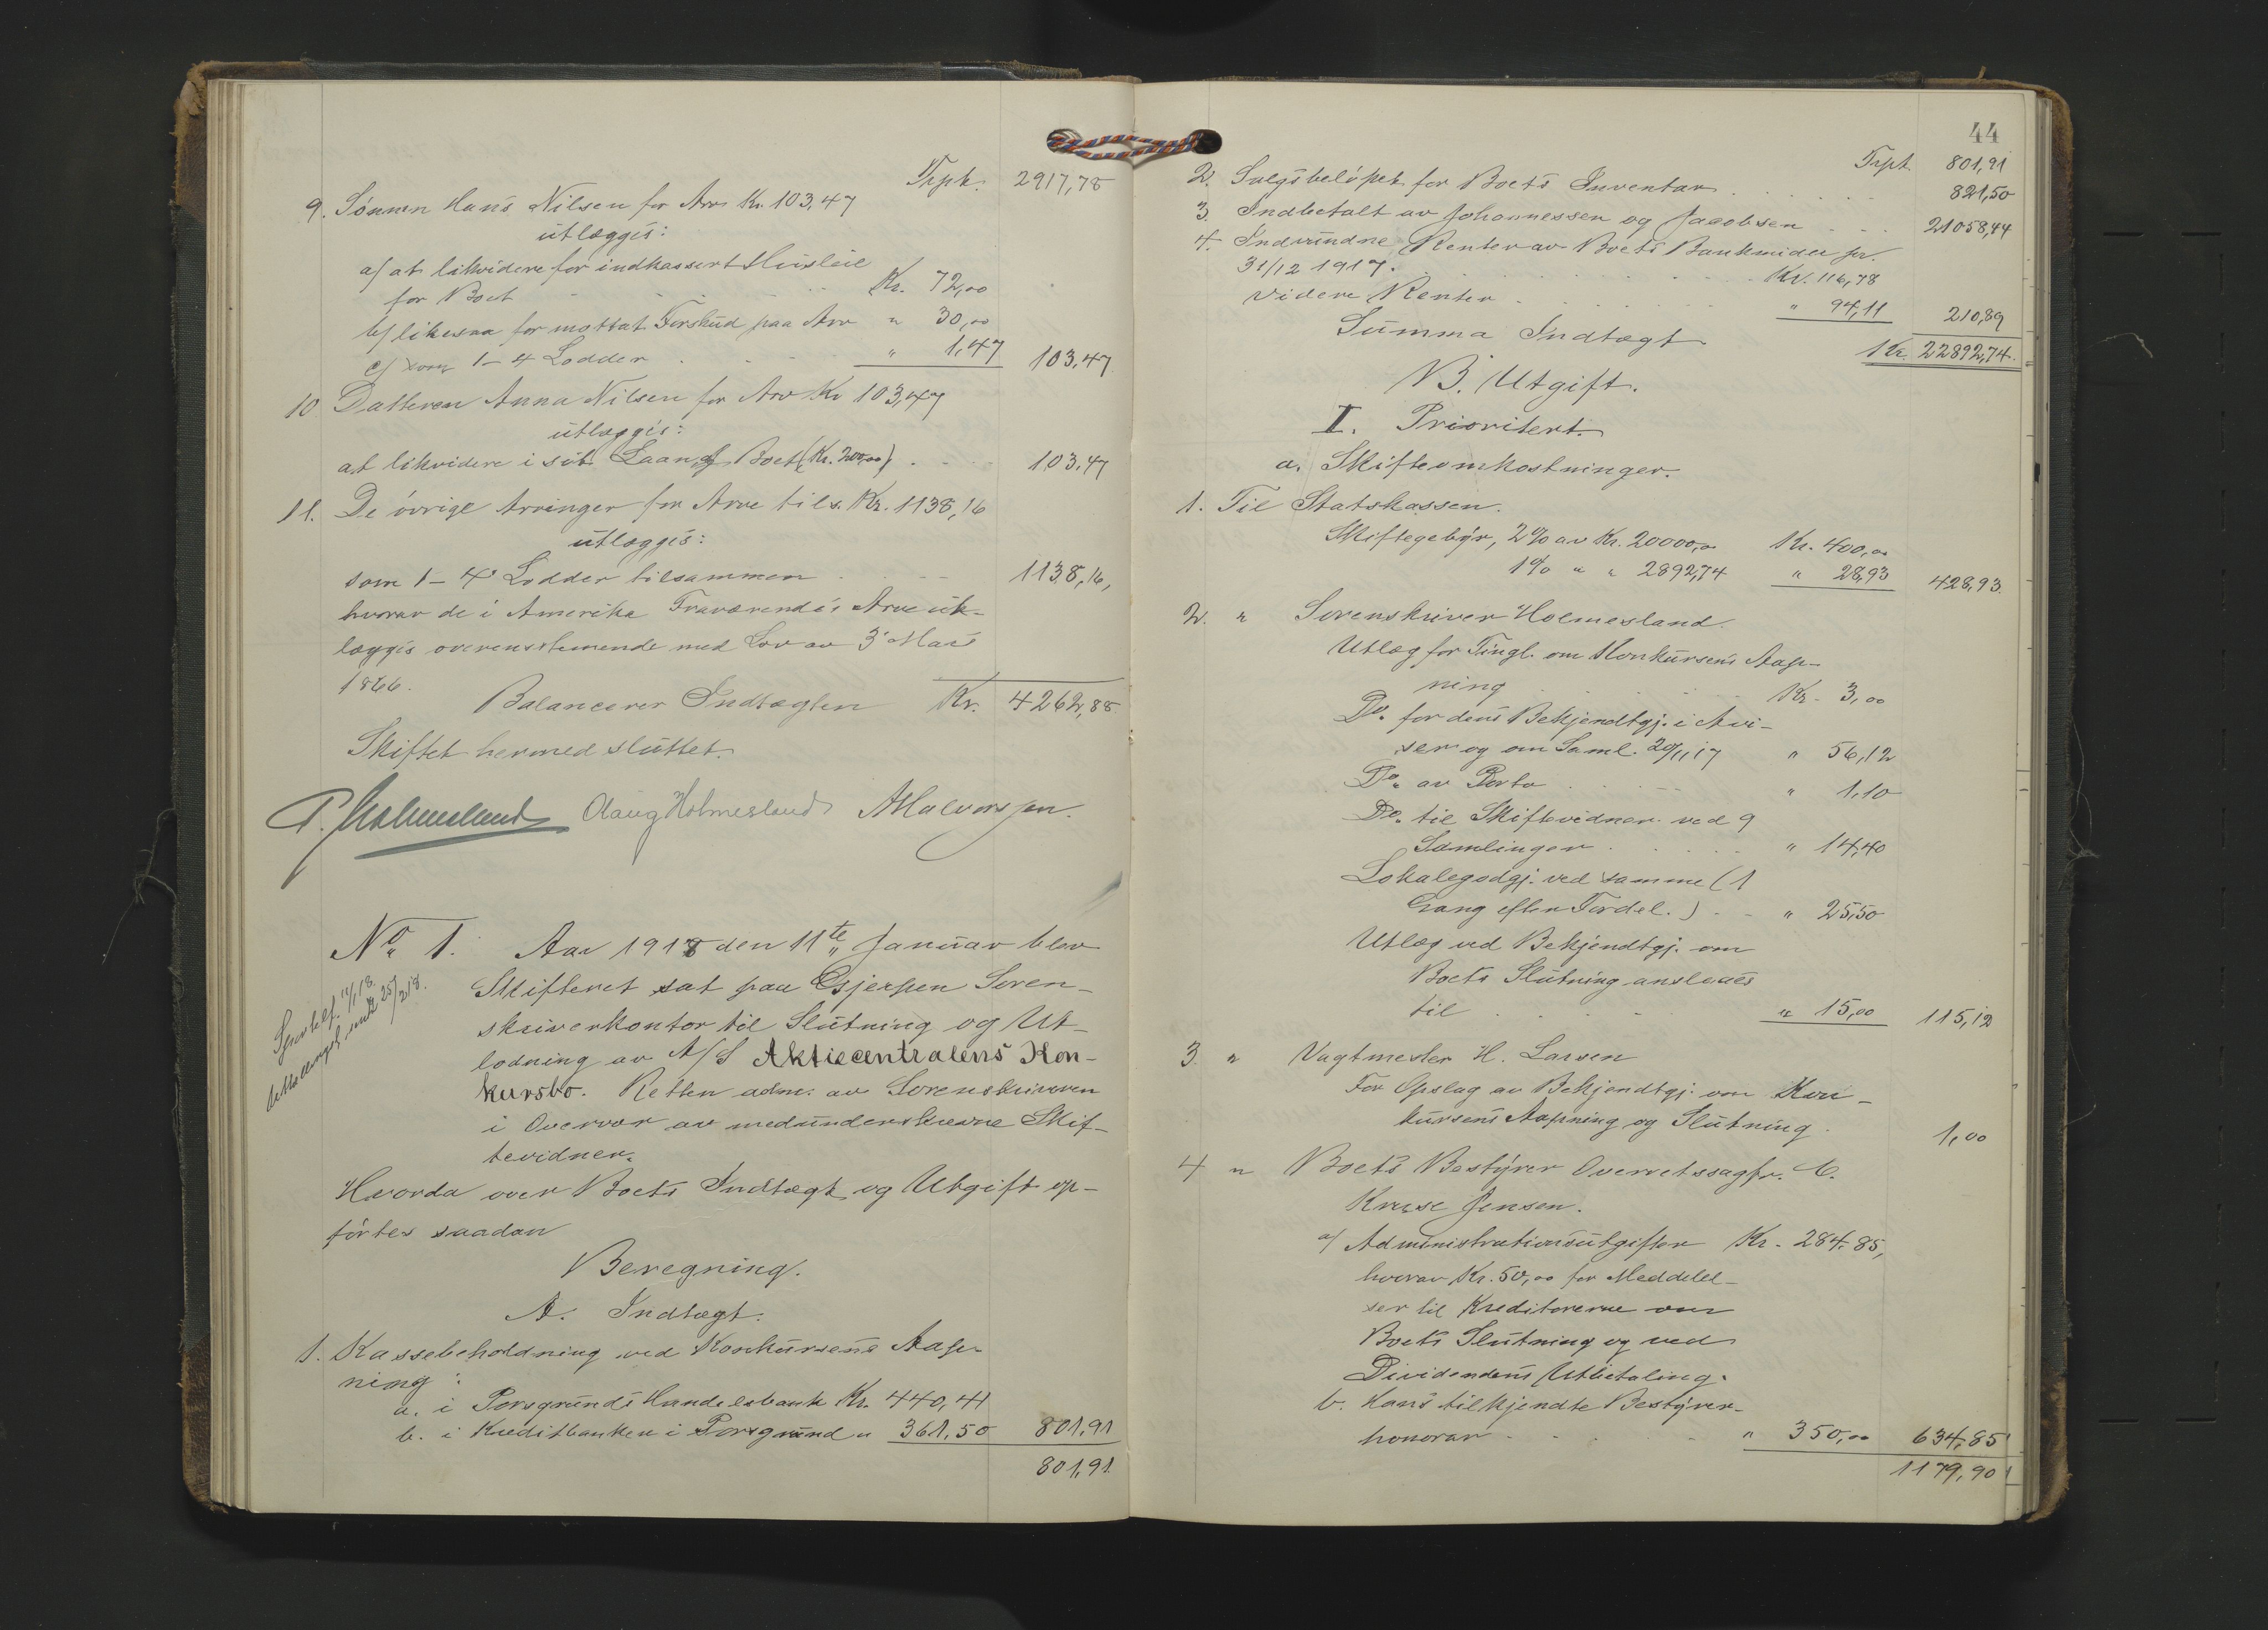 Trpt. 2917,78
9. Sønnen Hans Nilsen for Arv Kr. 103,47
utlægges:
a/ at likvidere for indkassert Husleie
for Boet Kr. 72,00
b/ likesaa for mottat Forskud paa Arv " 30,00
c/ som 1-4 Lodder " 1,47 103,47
10. Datteren Anna Nilsen for Arv Kr 103,47
utlægges:
at likvidere i sit Laan af Boet (Kr. 200,00) 103,47
11. De øvrige Arvinger for Arve tils. Kr. 1138,16
utlægges:
som 1-4 Lodder tilsammen 1138,16,
hvorav de i Amerika Fraværendes Arve ut-
lægges overensstemmende med Lov av 3 Mai
1866.
Balancerer Indtægten Kr. 4262,88
Skiftet hermed sluttet.
P. Holmesland Aaug Holmesland AHalvorsen.
No 1. Aar 1918 den 11te Januar blev
Skifteret sat paa Gjerpen Soren-
skriverkontor til Slutning og Ut-
lodning av A/S Aktiecentralens Kon-
kursbo. Retten adm. av Sorenskriveren
i Overvær av medunderskrevne Skif-
tevidner.
Hvorda over Boets Indtægt og Utgift op-
førtes saadan
Beregning.
A. Indtægt.
1. Kassebeholdning ved Konkursens Aap-
ning:
a. i Porsgrunds Handelsbank Kr. 440,41
b. i Kreditbanken i Porsgrund " 361,50 801,91
801,91
44
Trpt. 801,91
2. Salgsbeløpet for Boets Inventar 821,50
3. Indbetalt av Johannessen og Jacobsen 21058,44
4. Indvundne Renter av Boets Bankmidler pr.
31/12 1917. Kr. 116,78
Videre Renter " 94,11 210,89
Summa Indtægt Kr. 22892,74
B. Utgift.
I. Prioritert.
a. Skifteomkostninger.
1. Til Statskassen.
Skiftegebyr, 2% av Kr. 20000,00 Kr. 400,00
1% " " 2892,74 " 28,93 428,93.
2. " Sorenskriver Holmesland.
Utlæg for Tingl. om Konkursens Aap-
ning Kr. 3,00
Do. for dens Bekjendtgj. i Avi-
ser og om Saml. 20/11 17 " 56,12
Do. av Porto " 1,10
Do. til Skiftevidner ved 9
Samlinger " 14,40
Lokalegodgj. ved samme (1
Gang efter Fordel.) " 25,50
Utlæg ved Bekjendtgj. om
Boets Slutning anslaaes
til " 15,00 115,12
3. " Vagtmester H. Larsen
For Opslag av Bekjendtgj. om Kon-
kursens Aapning og Slutning. 1,00
4 " Boets Bestyrer Overretssagfr. C.
Kruse Jensen.
a/ Administrationsutgifter Kr. 284,85,
hvorav Kr. 50,00 for Meddelel-
ser til Kreditorerne om
Boets Slutning og ved
Dividendens Utbetaling.
b. Hans tilkjendte Bestyrer-
honorar " 350,00 634,85
1179,90